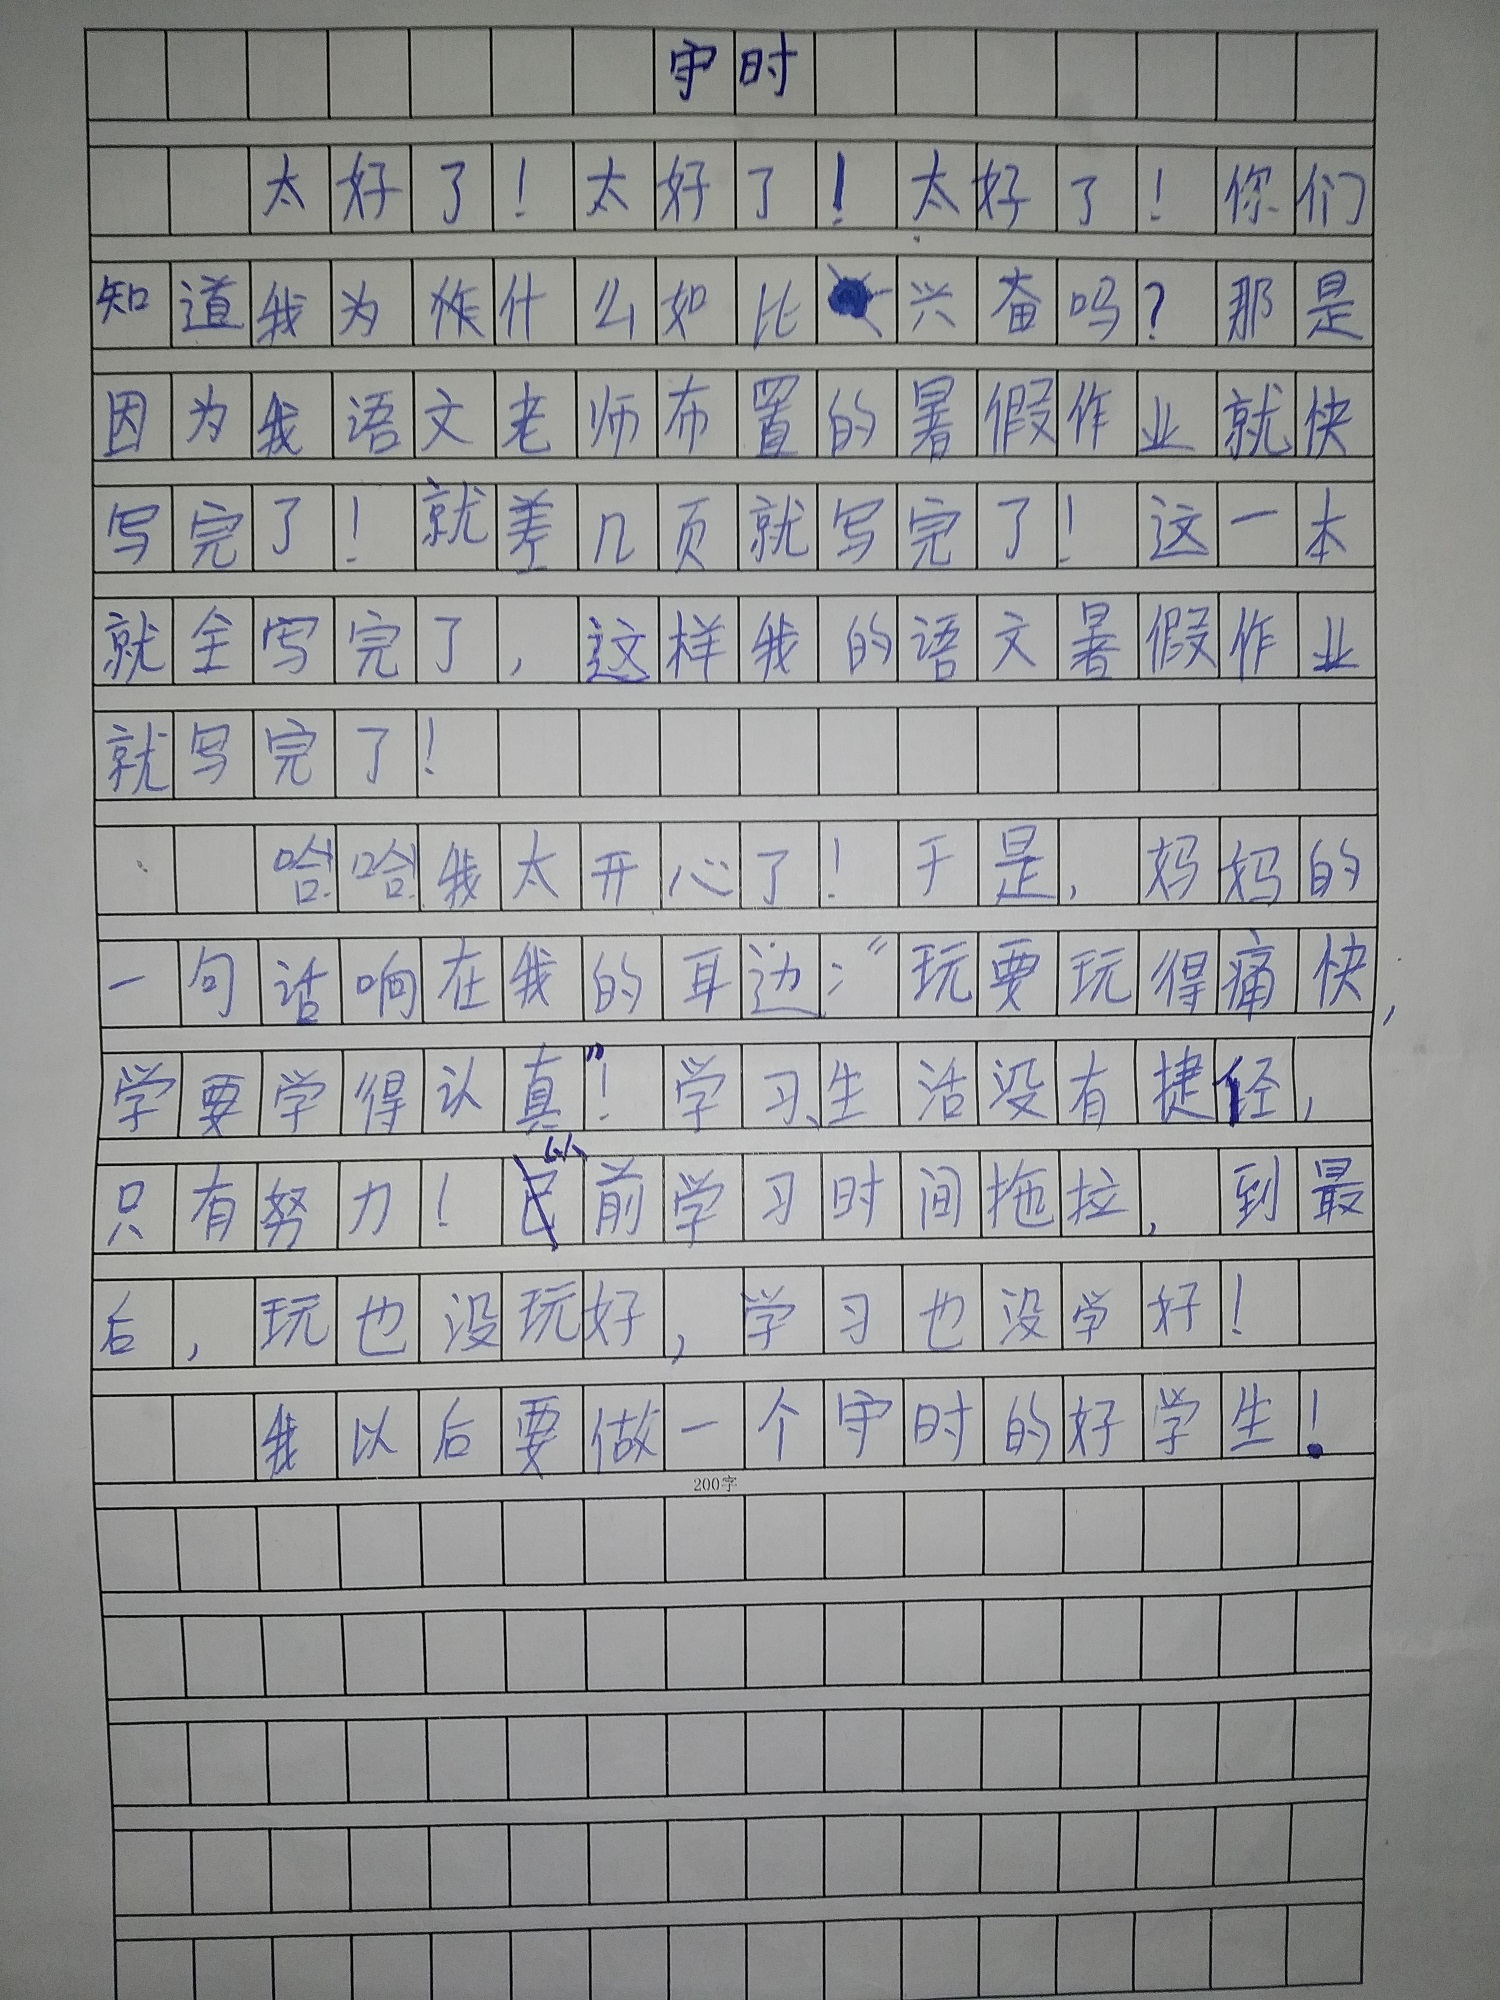 守时
太好了！太好了！太好了！你们
知道我为什么如比兴奋吗？那是
因为我语文老师布置的暑假作业就快
写完了！就差几页就写完了！这一本
就全写完了，这样我的语文暑假作业
就写完了！
哈哈我太开心了！于是，妈妈的
一句话响在我的耳边：“玩要玩得痛快，
学要学得认真”！学习生活没有捷径，
只有努力！以前学习时间拖拉，到最
后，玩也没玩好，学习也没学好！
我以后要做一个守时的好学生！
200字